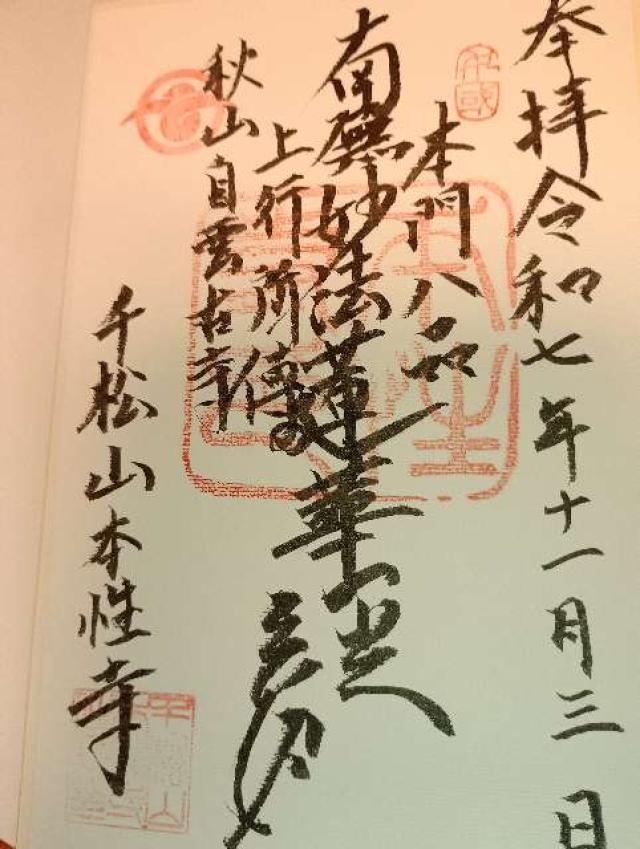 奉拝 令和七年十一月三日
本門八品
南無妙法蓮華経
上行所傳
秋山自雲古寺
千松山本性寺